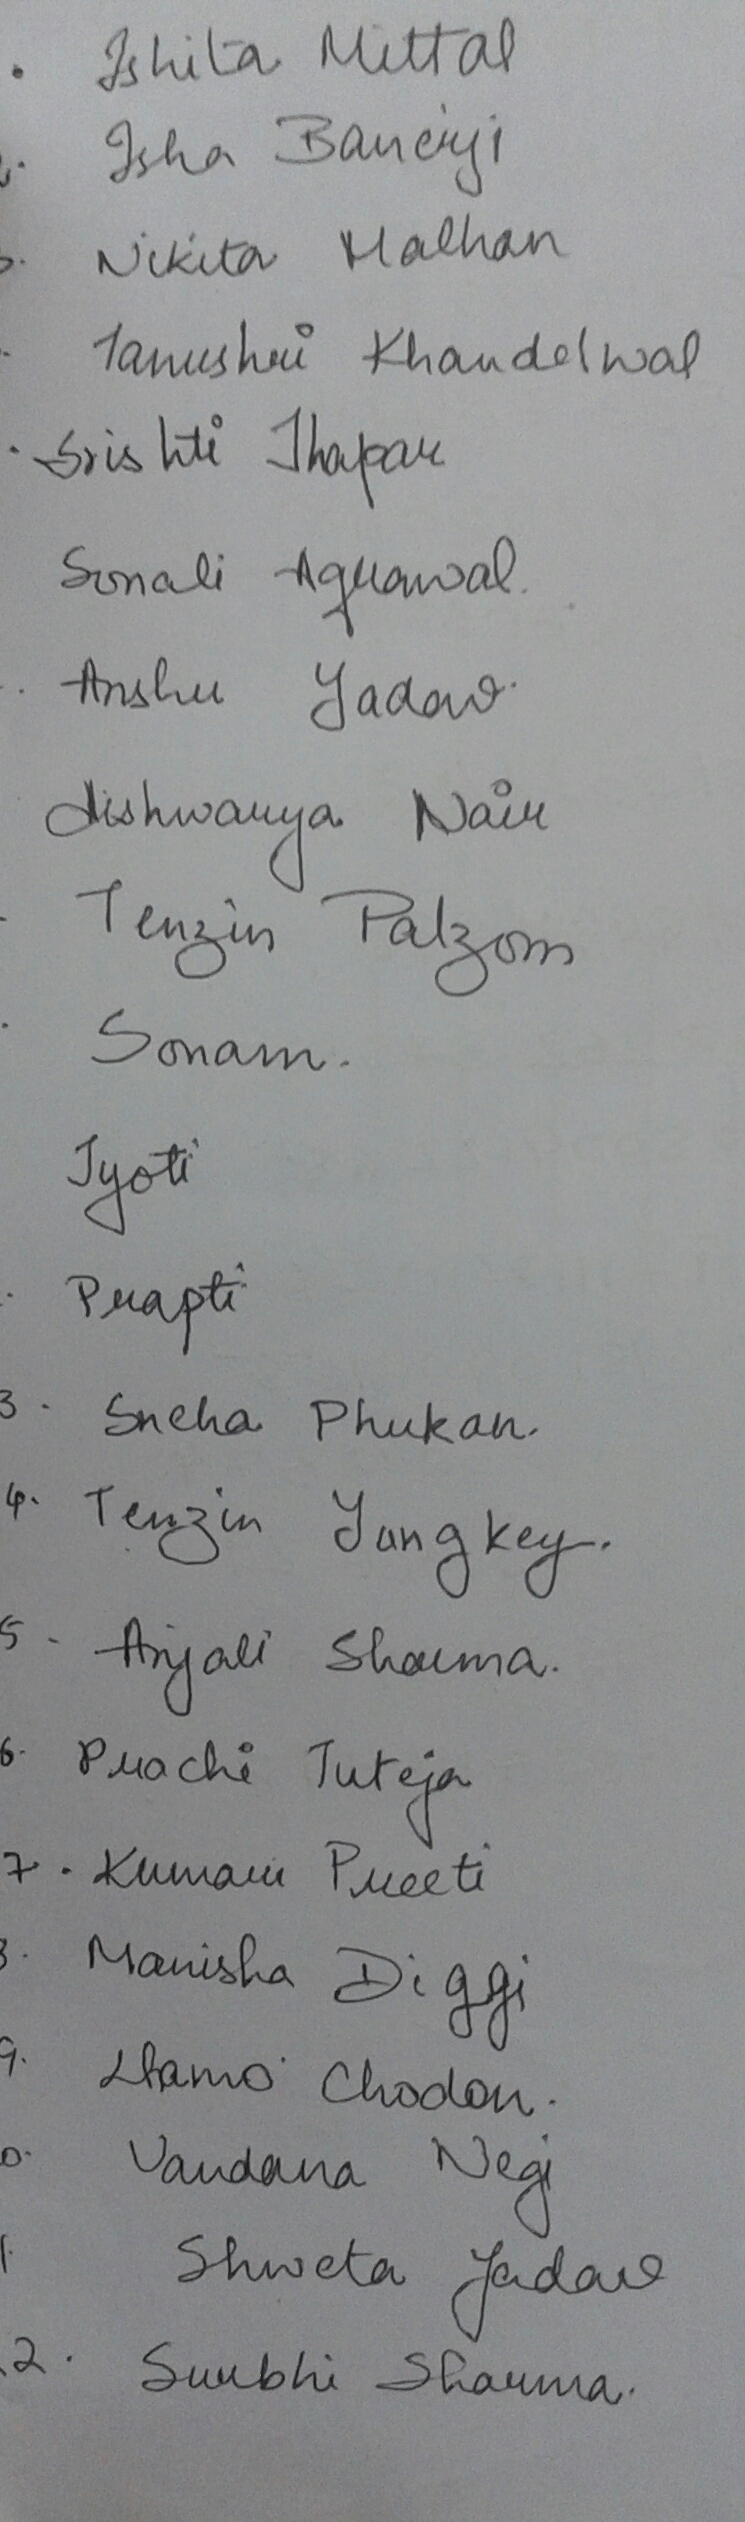 . Ishita Mittal
2. Isha Banerji
3. Nikita Malhan
. Tanushri Khandelwal
. Srishti Thapar
Sonali Agrawal.
. Anshu Yadav.
Aishwarya Nair
Tenzin Palzom
. Sonam.
Jyoti
. Prapti
3. Sneha Phukan.
4. Tenzin Yangkey.
5. Anjali Sharma.
6. Prachi Tuteja
7. Kumari Preeti
8. Manisha Diggi
9. Lhamo Chodon.
0. Vandana Negi
1. Shweta Yadav
22. Surbhi Sharma.